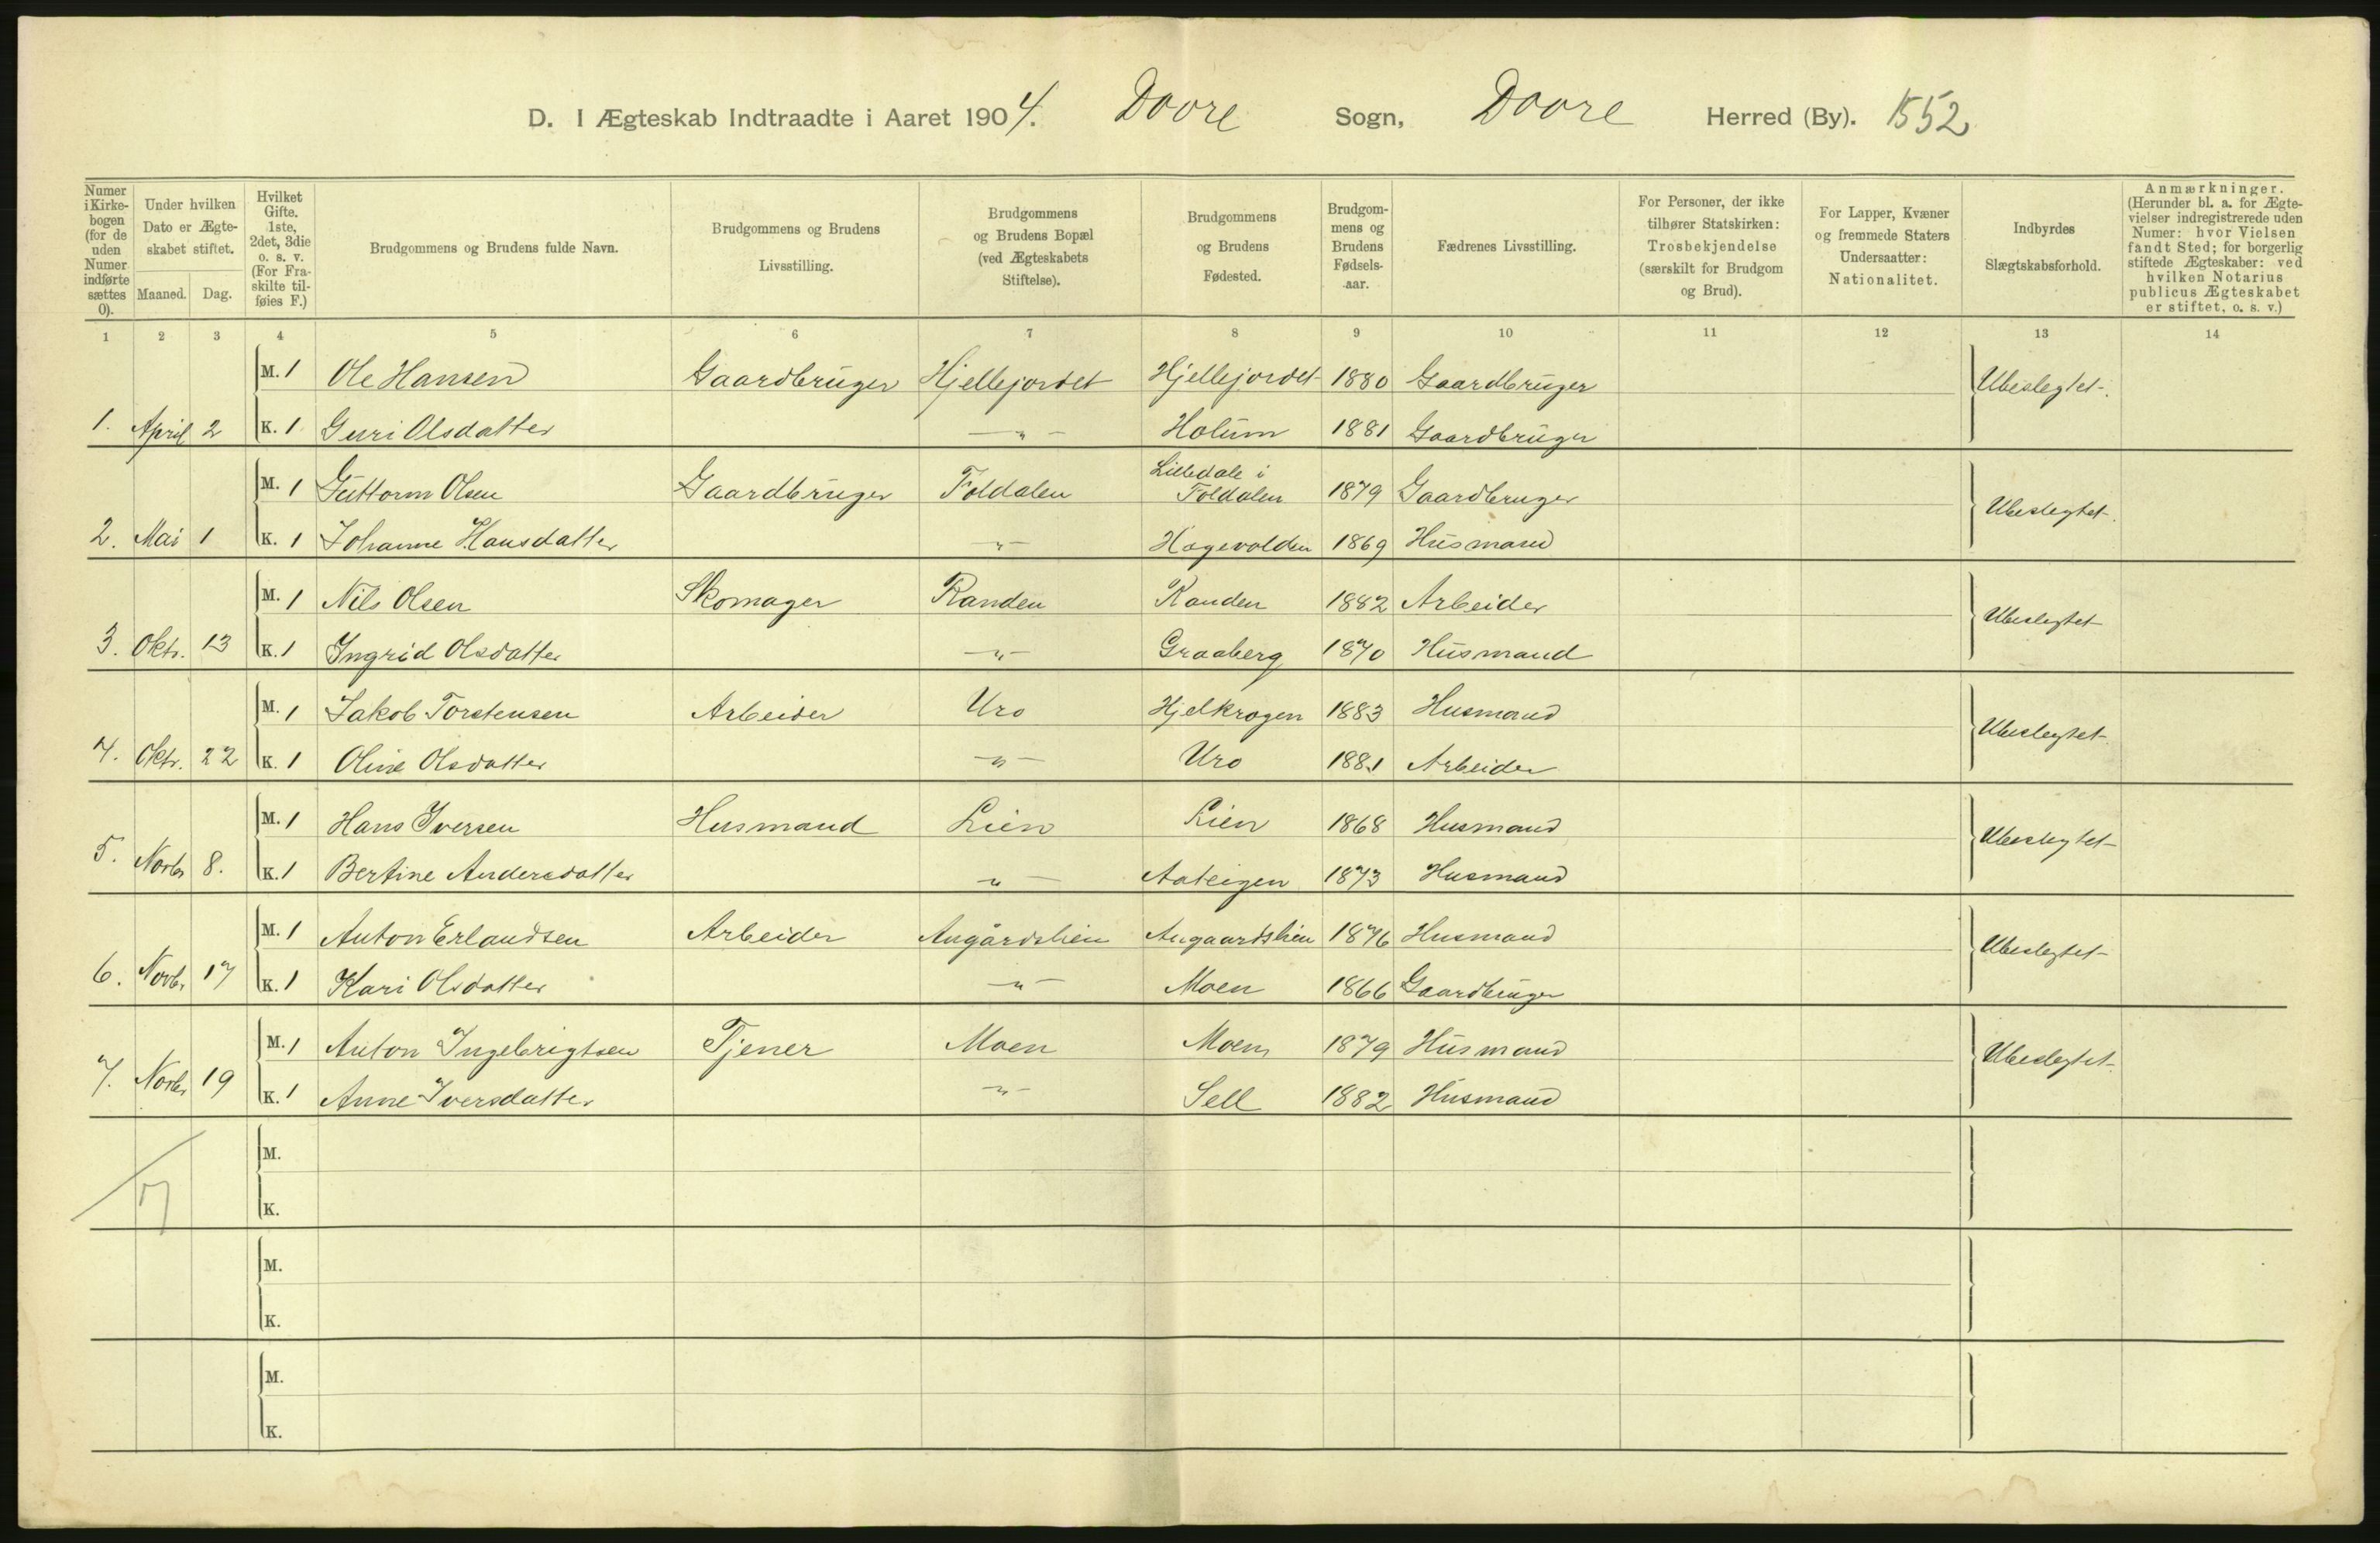 D. I Ægteskab Indtraadte i Aaret 1904. Dovre Sogn, Dovre Herred (By). 1552
Numer i Kirkebogen (for de uden Numer indførte sættes 0).
Under hvilken Dato er Ægteskabet stiftet.
Maaned. Dag.
Hvilket Gifte. 1ste, 2det, 3die o. s. v. (For Fraskilte tilføies F.)
Brudgommens og Brudens fulde Navn.
Brudgommens og Brudens Livsstilling.
Brudgommens og Brudens Bopæl (ved Ægteskabets Stiftelse).
Brudgommens og Brudens Fødested.
Brudgommens og Brudens Fødselsaar.
Fædrenes Livsstilling.
For Personer, der ikke tilhører Statskirken: Trosbekjendelse (særskilt for Brudgom og Brud).
For Lapper, Kvæner og fremmede Staters Undersaatter: Nationalitet.
Indbyrdes Slægtskabsforhold.
Anmærkninger. (Herunder bl. a. for Ægtevielser indregistrerede uden Numer: hvor Vielsen fandt Sted; for borgerlig stiftede Ægteskaber: ved hvilken Notarius publicus Ægteskabet er stiftet, o. s. v.)
1 2 3 4 5 6 7 8 9 10 11 12 13 14
M. 1 Ole Hansen Gaardbruger Hjellejordet Hjellejordet 1880 Gaardbruger Ubeslegtet.
1. April 2 K. 1 Guri Olsdatter —„— Holum 1881 Gaardbruger
M. 1 Guttorm Olsen Gaardbruger Foldalen Lilledale i Foldalen 1879 Gaardbruger Ubeslegtet.
2. Mai 1 K. 1 Johanne Hansdatter —„— Hagevolden 1869 Husmand
M. 1 Nils Olsen Skomager Randen Randen 1882 Arbeider Ubeslegtet
3. Oktr. 13 K. 1 Ingrid Olsdatter —„— Graaberg 1870 Husmand
M. 1 Jakob Torstensen Arbeider Uro Hjelkrogen 1883 Husmand Ubeslegtet
4. Oktr. 22 K. 1 Oline Olsdatter —„— Uro 1881 Arbeider
M. 1 Hans Iversen Husmand Lien Lien 1868 Husmand Ubeslegtet
5. Novbr 8. K. 1 Bertine Andersdatter —„— Aateigen 1873 Husmand
M. 1 Anton Erlandsen Arbeider Angårdslien Angaardslien 1876 Husmand Ubeslegtet
6. Novbr. 17 K. 1 Kari Olsdatter —„— Moen 1866 Gaardbruger
M. 1 Anton Ingebrigtsen Tjener Moen Moen 1879 Husmand Ubeslegtet.
7. Novbr 19 K. 1 Anne Iversdatter —„— Sell 1882 Husmand
M.
7
K.
M.
K.
M.
K.